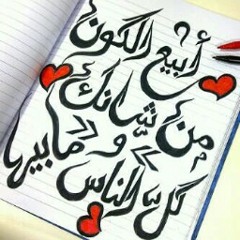 أبيع الكون
من شانك
و مابيها
كل الناس